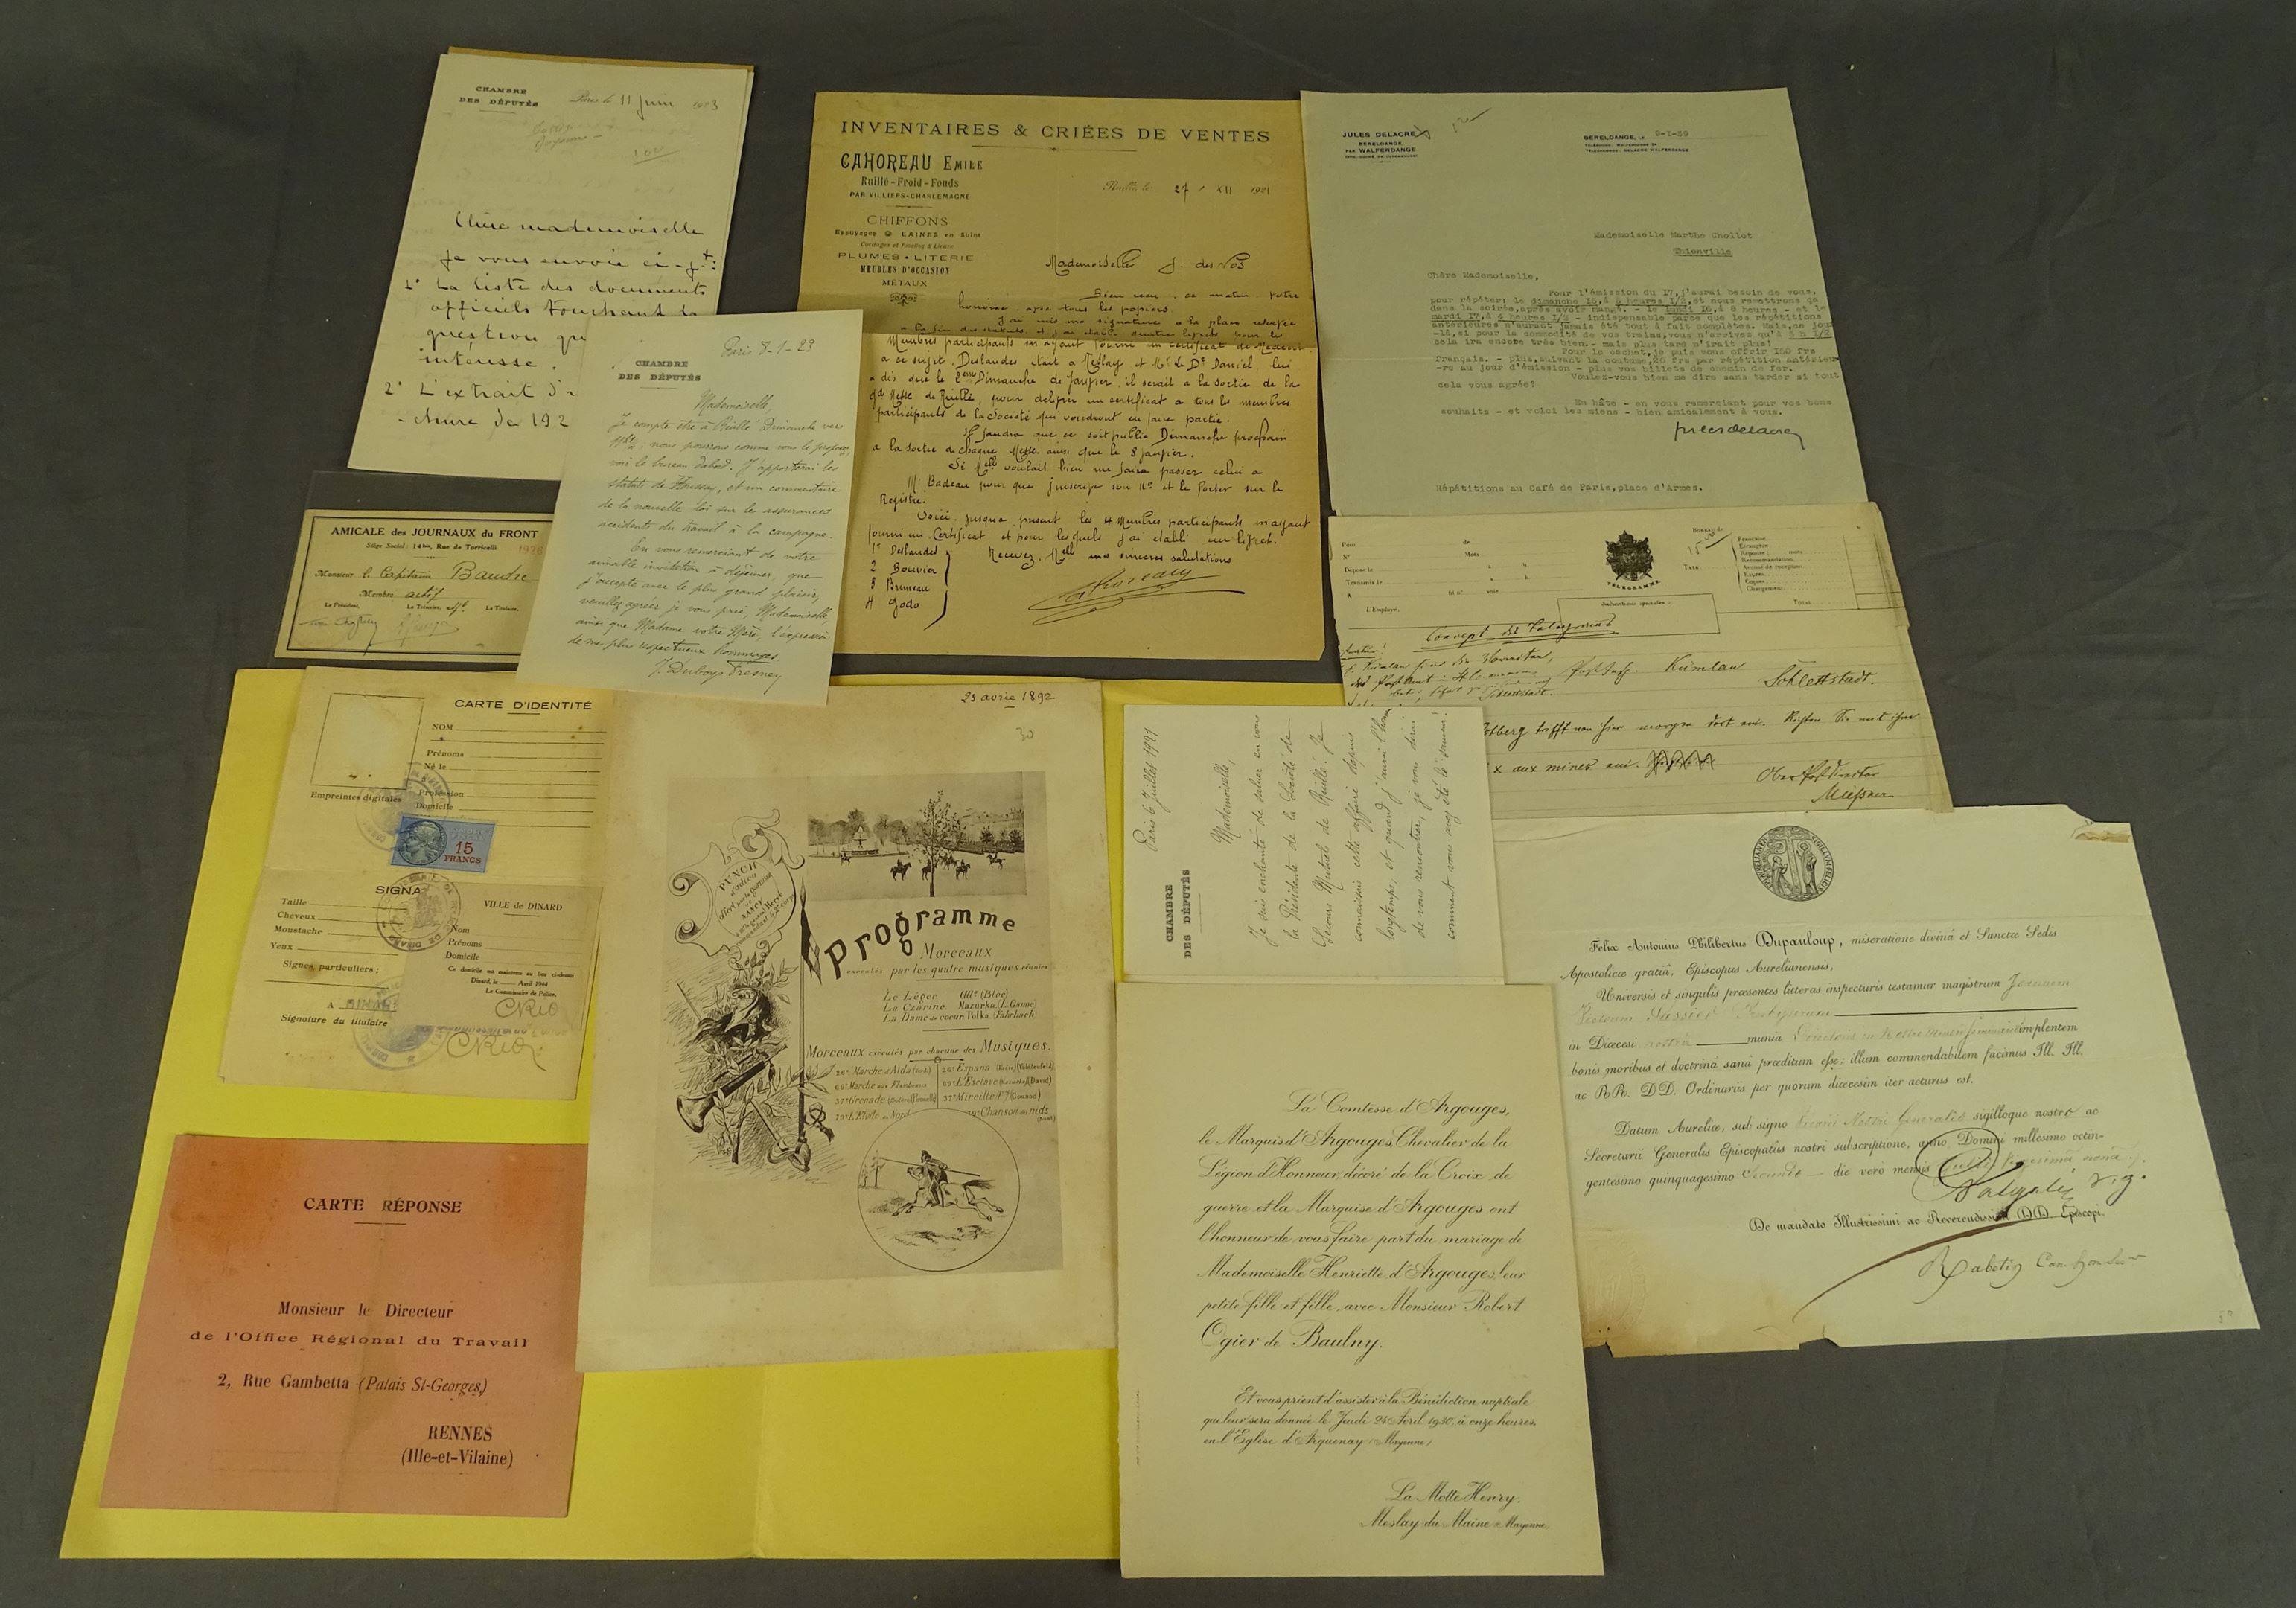 CHAMBRE
DES DÉPUTÉS
Paris le 11 juin
Chère mademoiselle
Je vous envoie ci-jt:
1° La liste des documents
officiels touchant la
question qu
intéresse.
2° L'extrait d'
CHAMBRE
DES DÉPUTÉS
Paris 8-1-23
Mademoiselle,
Je compte être à Ruillé Dimanche vers
nous pourrons comme vous le proposez,
voir le bureau d'abord. J'apporterai les
statuts de Houssay, et un commentaire
de la nouvelle loi sur les assurances
accidents du travail à la campagne.
En vous remerciant de votre
aimable invitation à déjeuner, que
j'accepte avec le plus grand plaisir,
veuillez agréer je vous prie, Mademoiselle,
ainsi que Madame votre Mère, l'expression
de mes plus respectueux hommages
J. Duboys Fresney
INVENTAIRES & CRIÉES DE VENTES
CAHOREAU EMILE
Ruillé-Froid-Fonds
PAR VILLIERS-CHARLEMAGNE
CHIFFONS
Essuyages LAINES en Suint
PLUMES • LITERIE
MEUBLES D'OCCASION
MÉTAUX
Ruillé, le 27 / XII 1921
Mademoiselle J. des Nos
Bien reçu ce matin votre
tous les papiers
J'ai mis ma signature a la place
a la fin des statuts et j'ai établi quatre livrets pour les
Membres participants m ayant fourni un certificat de Médecin
a ce sujet. Deslandes était a Meslay et Mr Le Dr Daniel lui
a dis que le 2eme Dimanche de Janvier il serait a la sortie de la
gd Messe de Ruillé, pour délivrer un certificat a tous les membres
participants de la Société qui voudront en faire partie.
Il faudra que ce soit publié Dimanche prochain
a la sortie de chaque Messe ainsi que le 8 janvier.
Si Melle voulait bien me faire passer celui a
M. Badeau pour que j'inscrive son No et le Porter sur le
Registre.
Voici jusqua présent les 4 Membres participants m ayant
fourni un Certificat et pour lesquels j'ai établi un livret.
1° Deslandes
2 Bouvier
3 Bruneau
4 Godo
Recevez Melle mes sincères salutations
Cahoreau
JULES DELACRE
BERELDANGE
PAR WALFERDANGE
BERELDANGE, LE 9-1-39
Mademoiselle Marthe Chollot
Thionville
Chère Mademoiselle,
Pour l'émission du 17, j'aurai besoin de vous.
pour répéter: le dimanche 15, à 5 heures 1/2, et nous remettrons ça
dans la soirée, après avoir mangé. - le lundi 16, à 8 heures - et le
mardi 17, à 4 heures 1/2 - indispensable parce que les répétitions
antérieures n'auront jamais été tout à fait complètes. Mais, ce jour
-là, si pour la commodité de vos trains, vous n'arrivez qu'à 5 h 1/2
cela ira encore très bien - mais plus tard n'irait plus!
Pour le cachet, je puis vous offrir 150 frs
français. - plus, suivant la coutume, 20 frs par répétition antérieu-
-re au jour d'émission - plus vos billets de chemin de fer.
Voulez-vous bien me dire sans tarder si tout
cela vous agrée?
En hâte - en vous remerciant pour vos bons
souhaits - et voici les miens - bien amicalement à vous.
jules delacre
Répétitions au Café de Paris, place d'Armes.
AMICALE des JOURNAUX du FRONT
Siège Social : 14bis, Rue de Torricelli
1928
Monsieur le Capitaine Baudre
Membre actif
Le Président, Le Trésorier, Le Titulaire,
TELEGRAMME
Pour
de
Mots
Déposé le
Transmis le
L'Employé,
Bureau de
TAXE
Indications spéciales:
TOTAL
Concept des Telegramms
Schlettstadt.
trifft von hier morgen dort ein. Richten Sie mit ihm
Ober Postdirector
Meißner
CARTE D'IDENTITÉ
NOM
Prénoms
Né le
Profession
Domicile
Empreintes digitales
15
FRANCS
SIGNA
Taille
Cheveux
Moustache
Yeux
Signes particuliers ;
A DINARD
Signature du titulaire
VILLE de DINARD
Nom
Prénoms
Domicile
Ce domicile est maintenu au lieu ci-dessus
Dinard, le Avril 1944
Le Commissaire de Police,
23 avril 1892
30
PUNCH
d'adieu
offert par la garnison
de
NANCY
Hervé
Programme
Morceaux
exécutés par les quatre musiques réunies
Le Léger Alltto (Bloc)
La Czarine. Mazurka (L. Ganne)
La Dame de cœur. Polka (Fahrbach)
Morceaux exécutés par chacune des Musiques.
26e Marche d'Aïda (Verdi)
69e Marche aux Flambeaux
37e Grenade
79e L'Etoile du Nord
26e España (Valse) (Waldteufel)
69e L'Esclave
37e Mireille (Gounod)
79e Chanson des nids
CHAMBRE
DES DÉPUTÉS
Paris 6 juillet 1921
Mademoiselle,
Je suis enchanté de saluer en vous
la Présidente de la Société de
Secours Mutuel de Ruillé. Je
connaissais cette affaire depuis
longtemps, et quand j'aurai l'hon
de vous rencontrer, je vous dirai
comment vous avez été le
Felix Antonius Philibertus Dupanloup, miseratione divinâ et Sanctæ Sedis
Apostolicæ gratiâ, Episcopus Aurelianensis,
Universis et singulis præsentes litteras inspecturis testamur magistrum Joannem
in Diœcesi nostrâ munia implentem
bonis moribus et doctrinâ sanâ præditum esse; illum commendabilem facimus Ill. Ill.
ac RR. DD. Ordinariis per quorum diœcesim iter acturus est.
Datum Aureliæ, sub signo Vicarii Nostri Generalis sigilloque nostro ac
Secretarii Generalis Episcopatûs nostri subscriptione, anno Domini millesimo octin-
gentesimo quinquagesimo secundo die verò mensis Julii vigesimâ nonâ
De mandato Illustrissimi ac Reverendissimi DD. Episcopi.
Rabotin
CARTE RÉPONSE
Monsieur le Directeur
de l'Office Régional du Travail
2, Rue Gambetta (Palais St-Georges)
RENNES
(Ille-et-Vilaine)
La Comtesse d'Argouges,
le Marquis d'Argouges, Chevalier de la
Légion d'Honneur, décoré de la Croix de
guerre et la Marquise d'Argouges ont
l'honneur de vous faire part du mariage de
Mademoiselle Henriette d'Argouges, leur
petite-fille et fille, avec Monsieur Robert
Ogier de Baulny.
Et vous prient d'assister à la Bénédiction nuptiale
qui leur sera donnée le Jeudi 24 Avril 1930, à onze heures,
en l'Église d'Arquenay (Mayenne)
La Motte Henry.
Meslay-du-Maine (Mayenne)